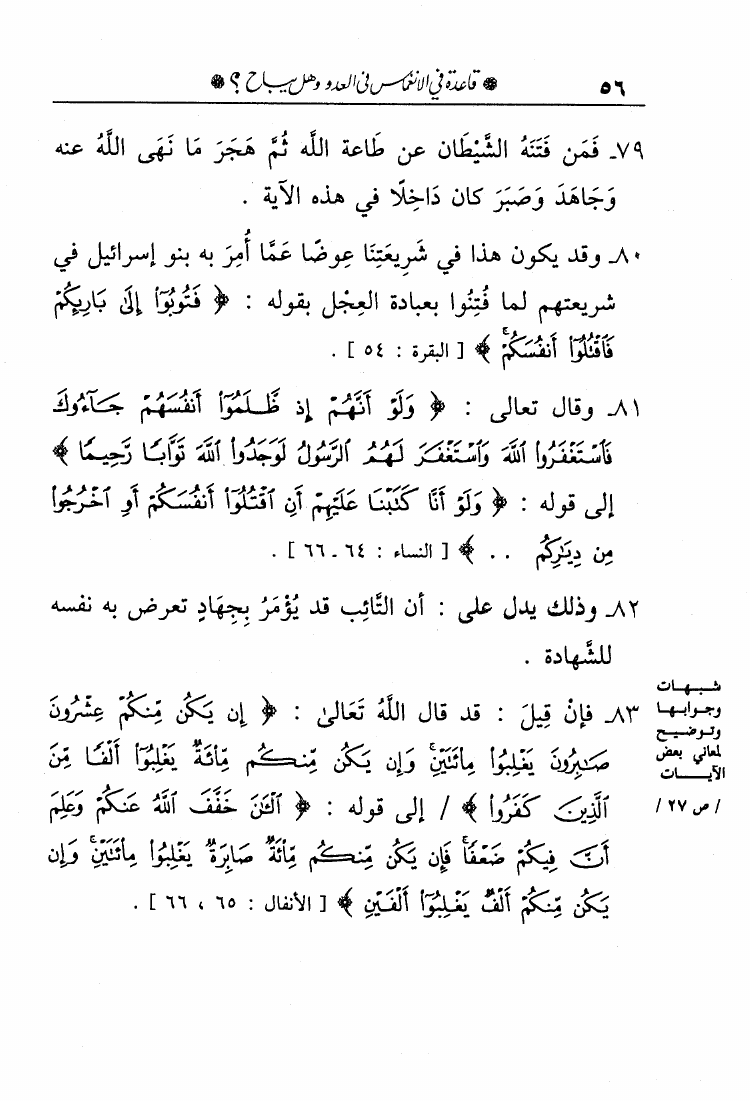 ٥٦
❁ قاعدة في الانغماس في العدو وهل يباح ؟ ❁
٧٩ـ فَمَن فَتَنَهُ الشَّيْطَان عن طَاعة اللَّه ثُمَّ هَجَرَ مَا نَهَى اللَّهُ عنه
وَجَاهَدَ وَصَبَرَ كان دَاخِلًا في هذه الآية .
٨٠ـ وقد يكون هذا في شَرِيعَتِنَا عِوضًا عَمَّا أُمِرَ به بنو إسرائيل في
شريعتهم لما فُتِنُوا بعبادة العِجْل بقوله : ﴿ فَتُوبُوٓا۟ إِلَىٰ بَارِئِكُمْ
فَٱقْتُلُوٓا۟ أَنفُسَكُمْ ۚ ﴾ [ البقرة : ٥٤ ] .
٨١ـ وقال تعالى : ﴿ وَلَوْ أَنَّهُمْ إِذ ظَّلَمُوٓا۟ أَنفُسَهُمْ جَآءُوكَ
فَٱسْتَغْفَرُوا۟ ٱللَّهَ وَٱسْتَغْفَرَ لَهُمُ ٱلرَّسُولُ لَوَجَدُوا۟ ٱللَّهَ تَوَّابًا رَّحِيمًا ﴾
إلى قوله : ﴿ وَلَوْ أَنَّا كَتَبْنَا عَلَيْهِمْ أَنِ ٱقْتُلُوٓا۟ أَنفُسَكُمْ أَوِ ٱخْرُجُوا۟
مِن دِيَٰرِكُم . . ﴾ [ النساء : ٦٤ـ٦٦ ] .
٨٢ـ وذلك يدل على : أن التَّائِب قد يُؤْمَرُ بِجِهَادٍ تعرض به نفسه
للشَّهادة .
شـبـهـات
وجـوابـهـا
وتـوضـيـح
لمعاني بعض
الآيـــات
/ ص ٢٧ /
٨٣ـ فإنْ قِيلَ : قد قال اللَّهُ تَعَالىٰ : ﴿ إِن يَكُن مِّنكُمْ عِشْرُونَ
صَٰبِرُونَ يَغْلِبُوا۟ مِا۟ئَتَيْنِ ۚ وَإِن يَكُن مِّنكُم مِّا۟ئَةٌ يَغْلِبُوٓا۟ أَلْفًا مِّنَ
ٱلَّذِينَ كَفَرُوا۟ ﴾ / إلى قوله : ﴿ ٱلْـَٰٔنَ خَفَّفَ ٱللَّهُ عَنكُمْ وَعَلِمَ
أَنَّ فِيكُمْ ضَعْفًا ۚ فَإِن يَكُن مِّنكُم مِّا۟ئَةٌ صَابِرَةٌ يَغْلِبُوا۟ مِا۟ئَتَيْنِ ۚ وَإِن
يَكُن مِّنكُمْ أَلْفٌ يَغْلِبُوٓا۟ أَلْفَيْنِ ﴾ [ الأنفال : ٦٥ ، ٦٦ ] .